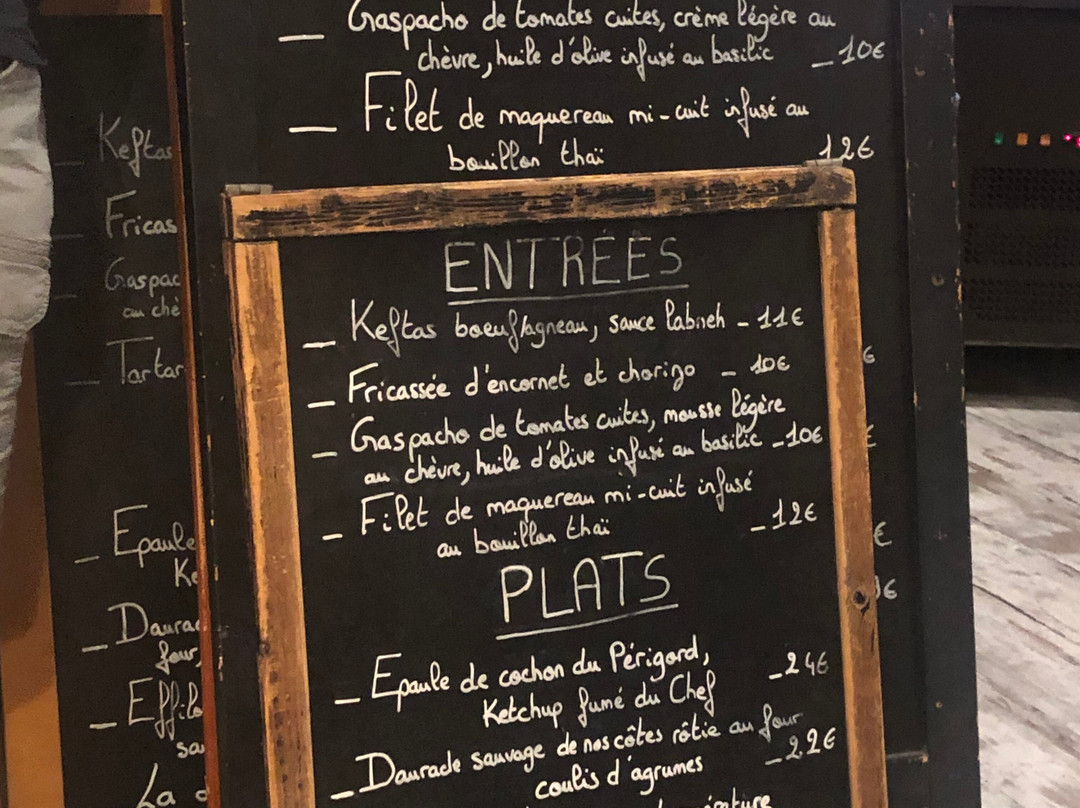 — Gaspacho de tomates cuites, crème légère au
chèvre, huile d'olive infusé au basilic — 10€
— Filet de maquereau mi-cuit infusé au
bouillon thaï 12€
Keftas
Fricas
Gaspac
au chè
Tartar
— Epaule
Ke
— Daurad
four,
— Effilo
sa
La d
ENTRÉES
— Keftas boeuf/agneau, sauce labneh - 11€
— Fricassée d'encornet et chorizo - 10€
— Gaspacho de tomates cuites, mousse légère
au chèvre, huile d'olive infusé au basilic - 10€
— Filet de maquereau mi-cuit infusé
au bouillon thaï - 12€
PLATS
— Epaule de cochon du Périgord,
Ketchup fumé du Chef - 24€
— Daurade sauvage de nos côtes rôtie au four
coulis d'agrumes - 22€
€
€
€
€